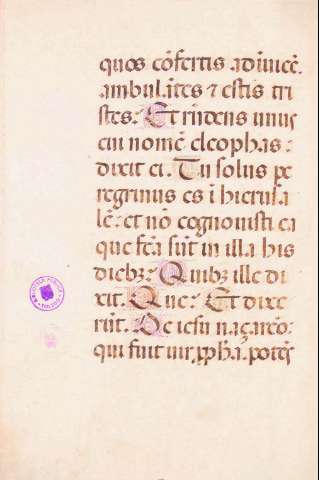 quos cõfertis adiuicẽ.
ambulãtes ⁊ estis tri
stes. Et rñdens unus
cui nomẽ cleophas:
dixit ei. Tu solus pe
regrinus es ĩ hierusa
lẽ: et nõ cognouisti ea
que fca sũt in illa his
diebꝫ? Quibꝫ ille di
xit. Que? Et dixe
rũt. De iesu naçareo:
qui fuit uir ꝓph̃a. potẽs